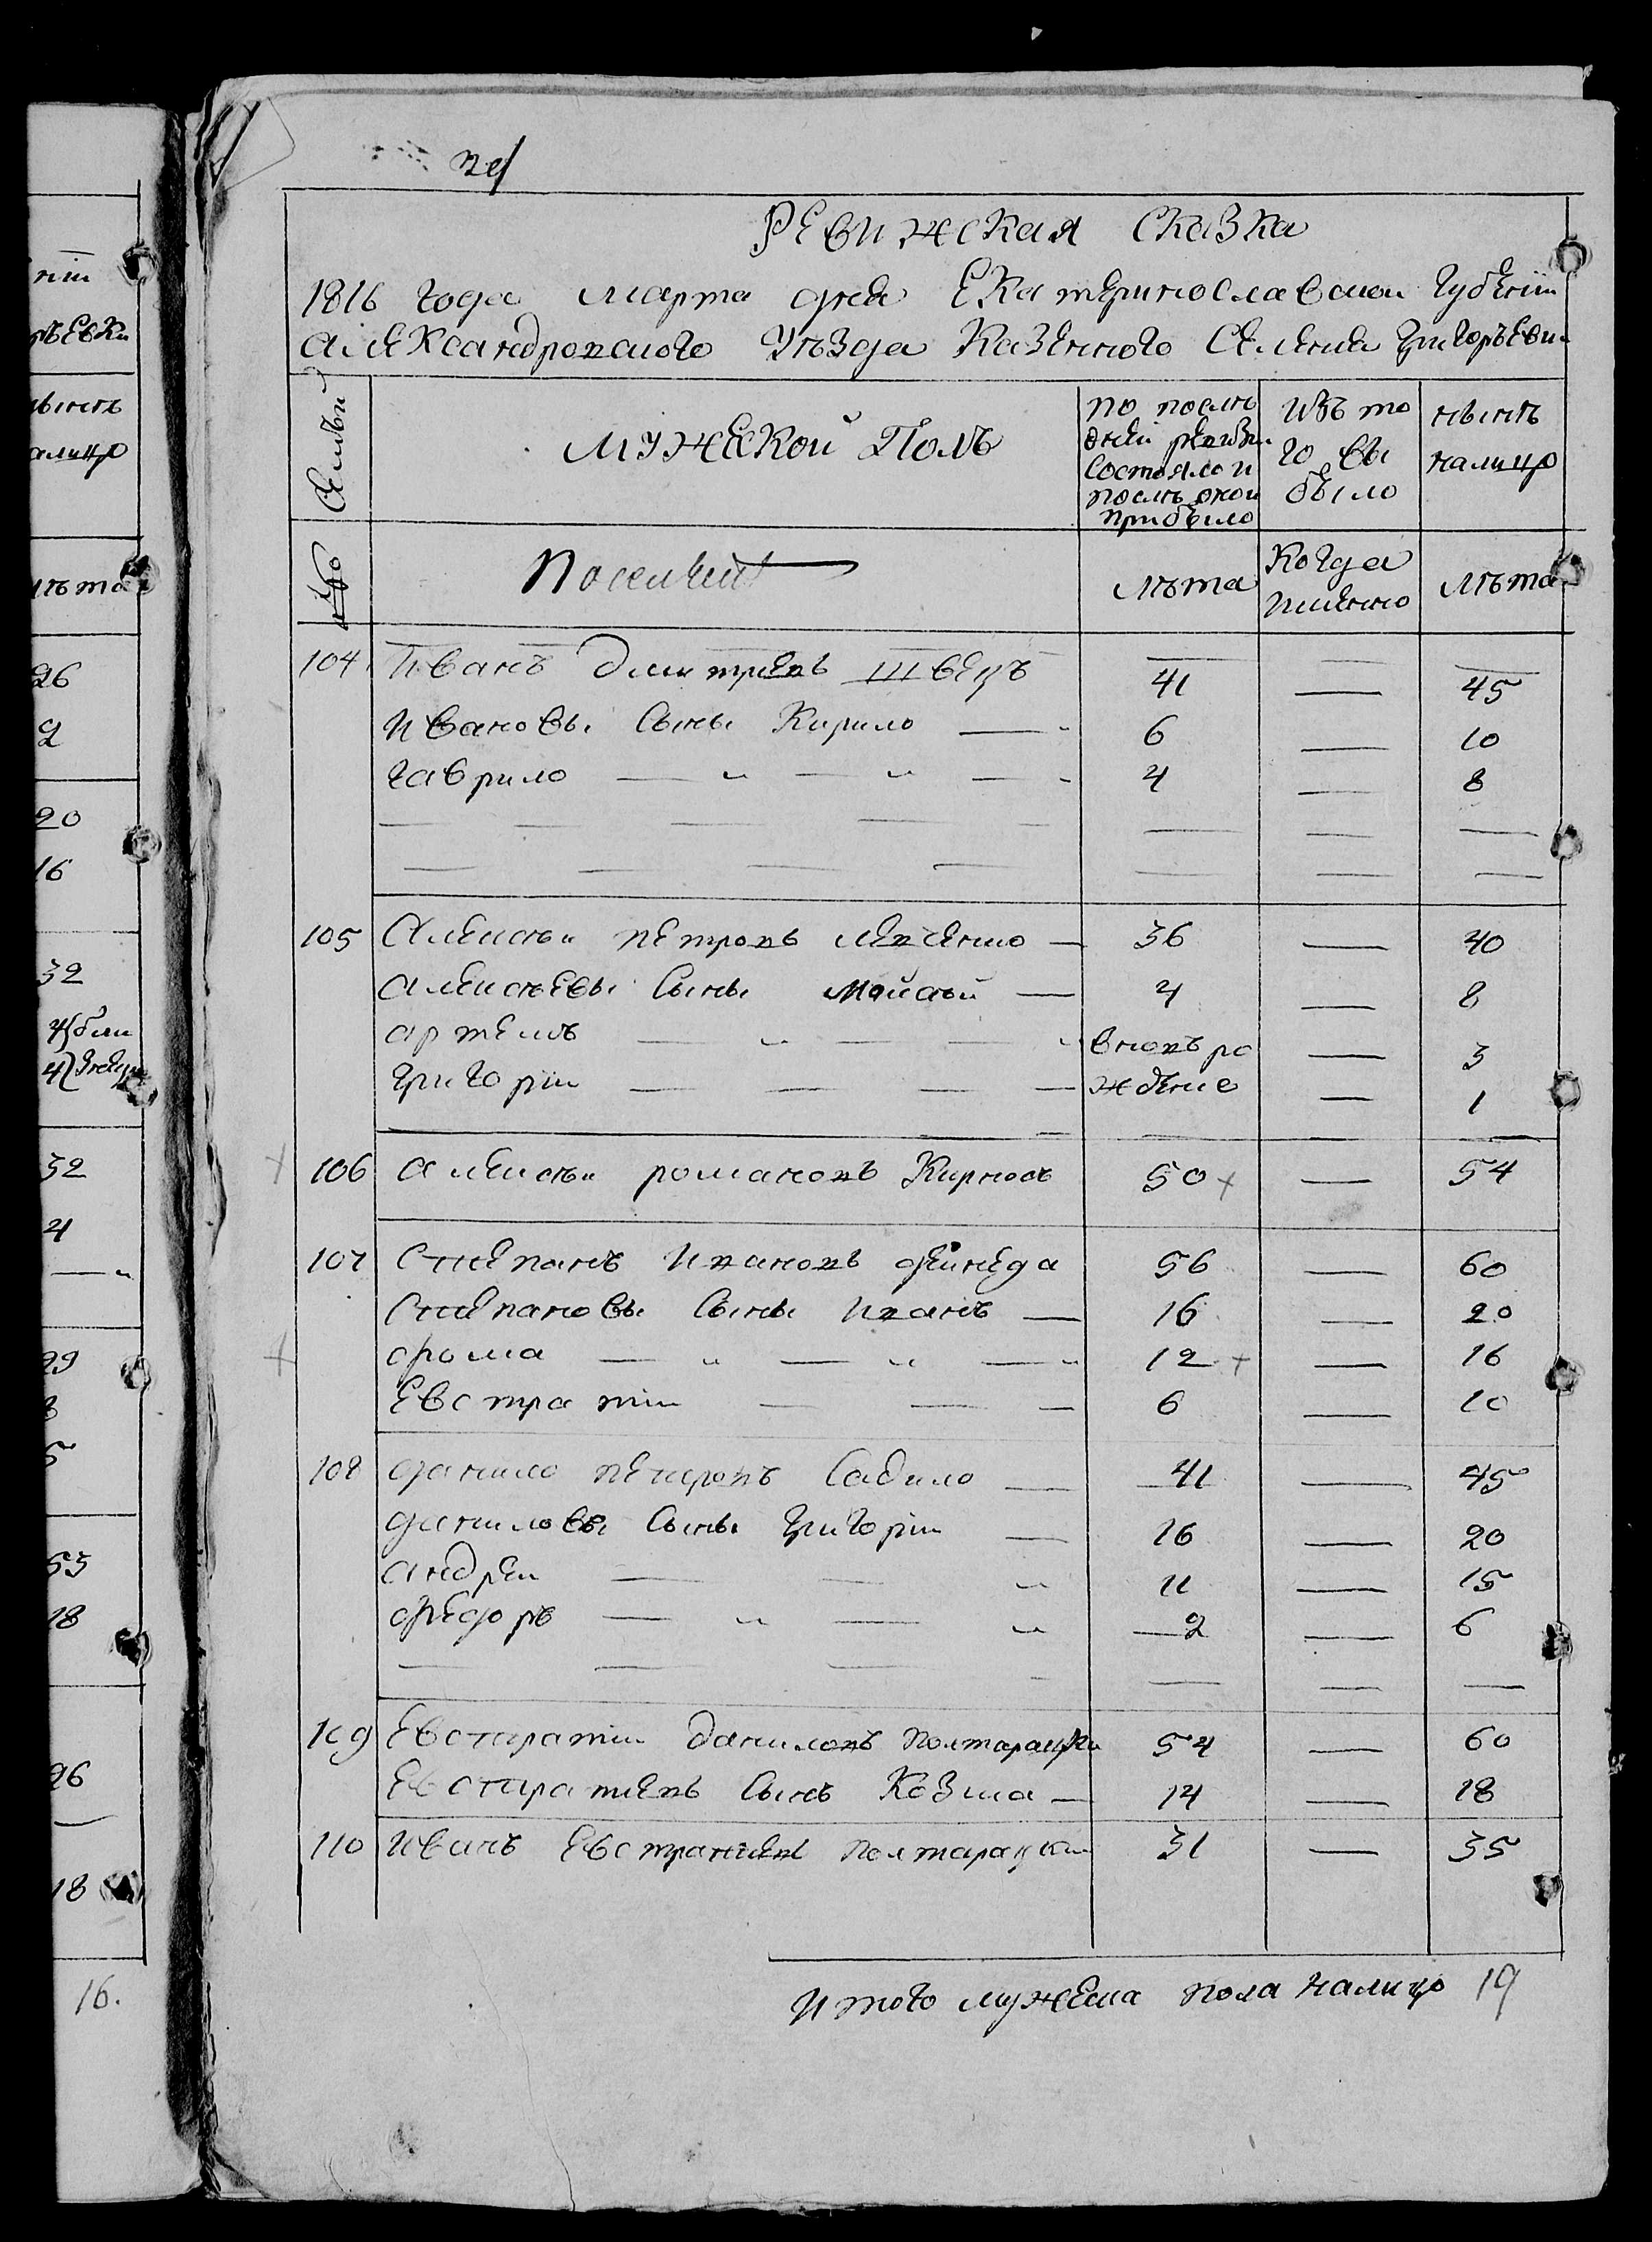 РЕвижская Сказка
1816 года марта дня Екатеринославской Губѣрнiи
Александровского Уѣзда Казенного Селения Григорьевки
Семьи
мужеской Полъ
по послѣ
дней ревизiи
состояло и
послѣ оной
прибыло
Изъ то
го вы
было
нынѣ
налицо
лѣта
Когда
имянно
лѣта
104 Иванъ дмитрiевъ швецъ 41 — 45
Ивановы Сыны Кирило — 6 — 10
гаврило — 4 — 8
105 Алексѣи петровъ левченко — 36 — 40
алексѣевы Сыны Мойсѣй — 4 — 8
артемъ — вновь ро — 3
григорiи — ждение — 1
106 алексѣи романовъ Кирносъ 50 — 54
107 Степанъ Ивановъ дейнеда 56 — 60
Степановы Сыны Иванъ — 16 — 20
фома — 12 — 16
Евстратiи — 6 — 10
108 данило петровъ Садило — 41 — 45
даниловы Сыны григорiи — 16 — 20
андреи — 11 — 15
федоръ — 2 — 6
109 Евстратiи даниловъ полтарацки 54 — 60
Евстратиевъ Сынъ Козма — 14 — 18
110 Иванъ Евстратиевъ полтарацкии 31 — 35
Итого мужеска пола налицо 19
26
2
20
16
32
32
4
29
53
18
26
18
16.